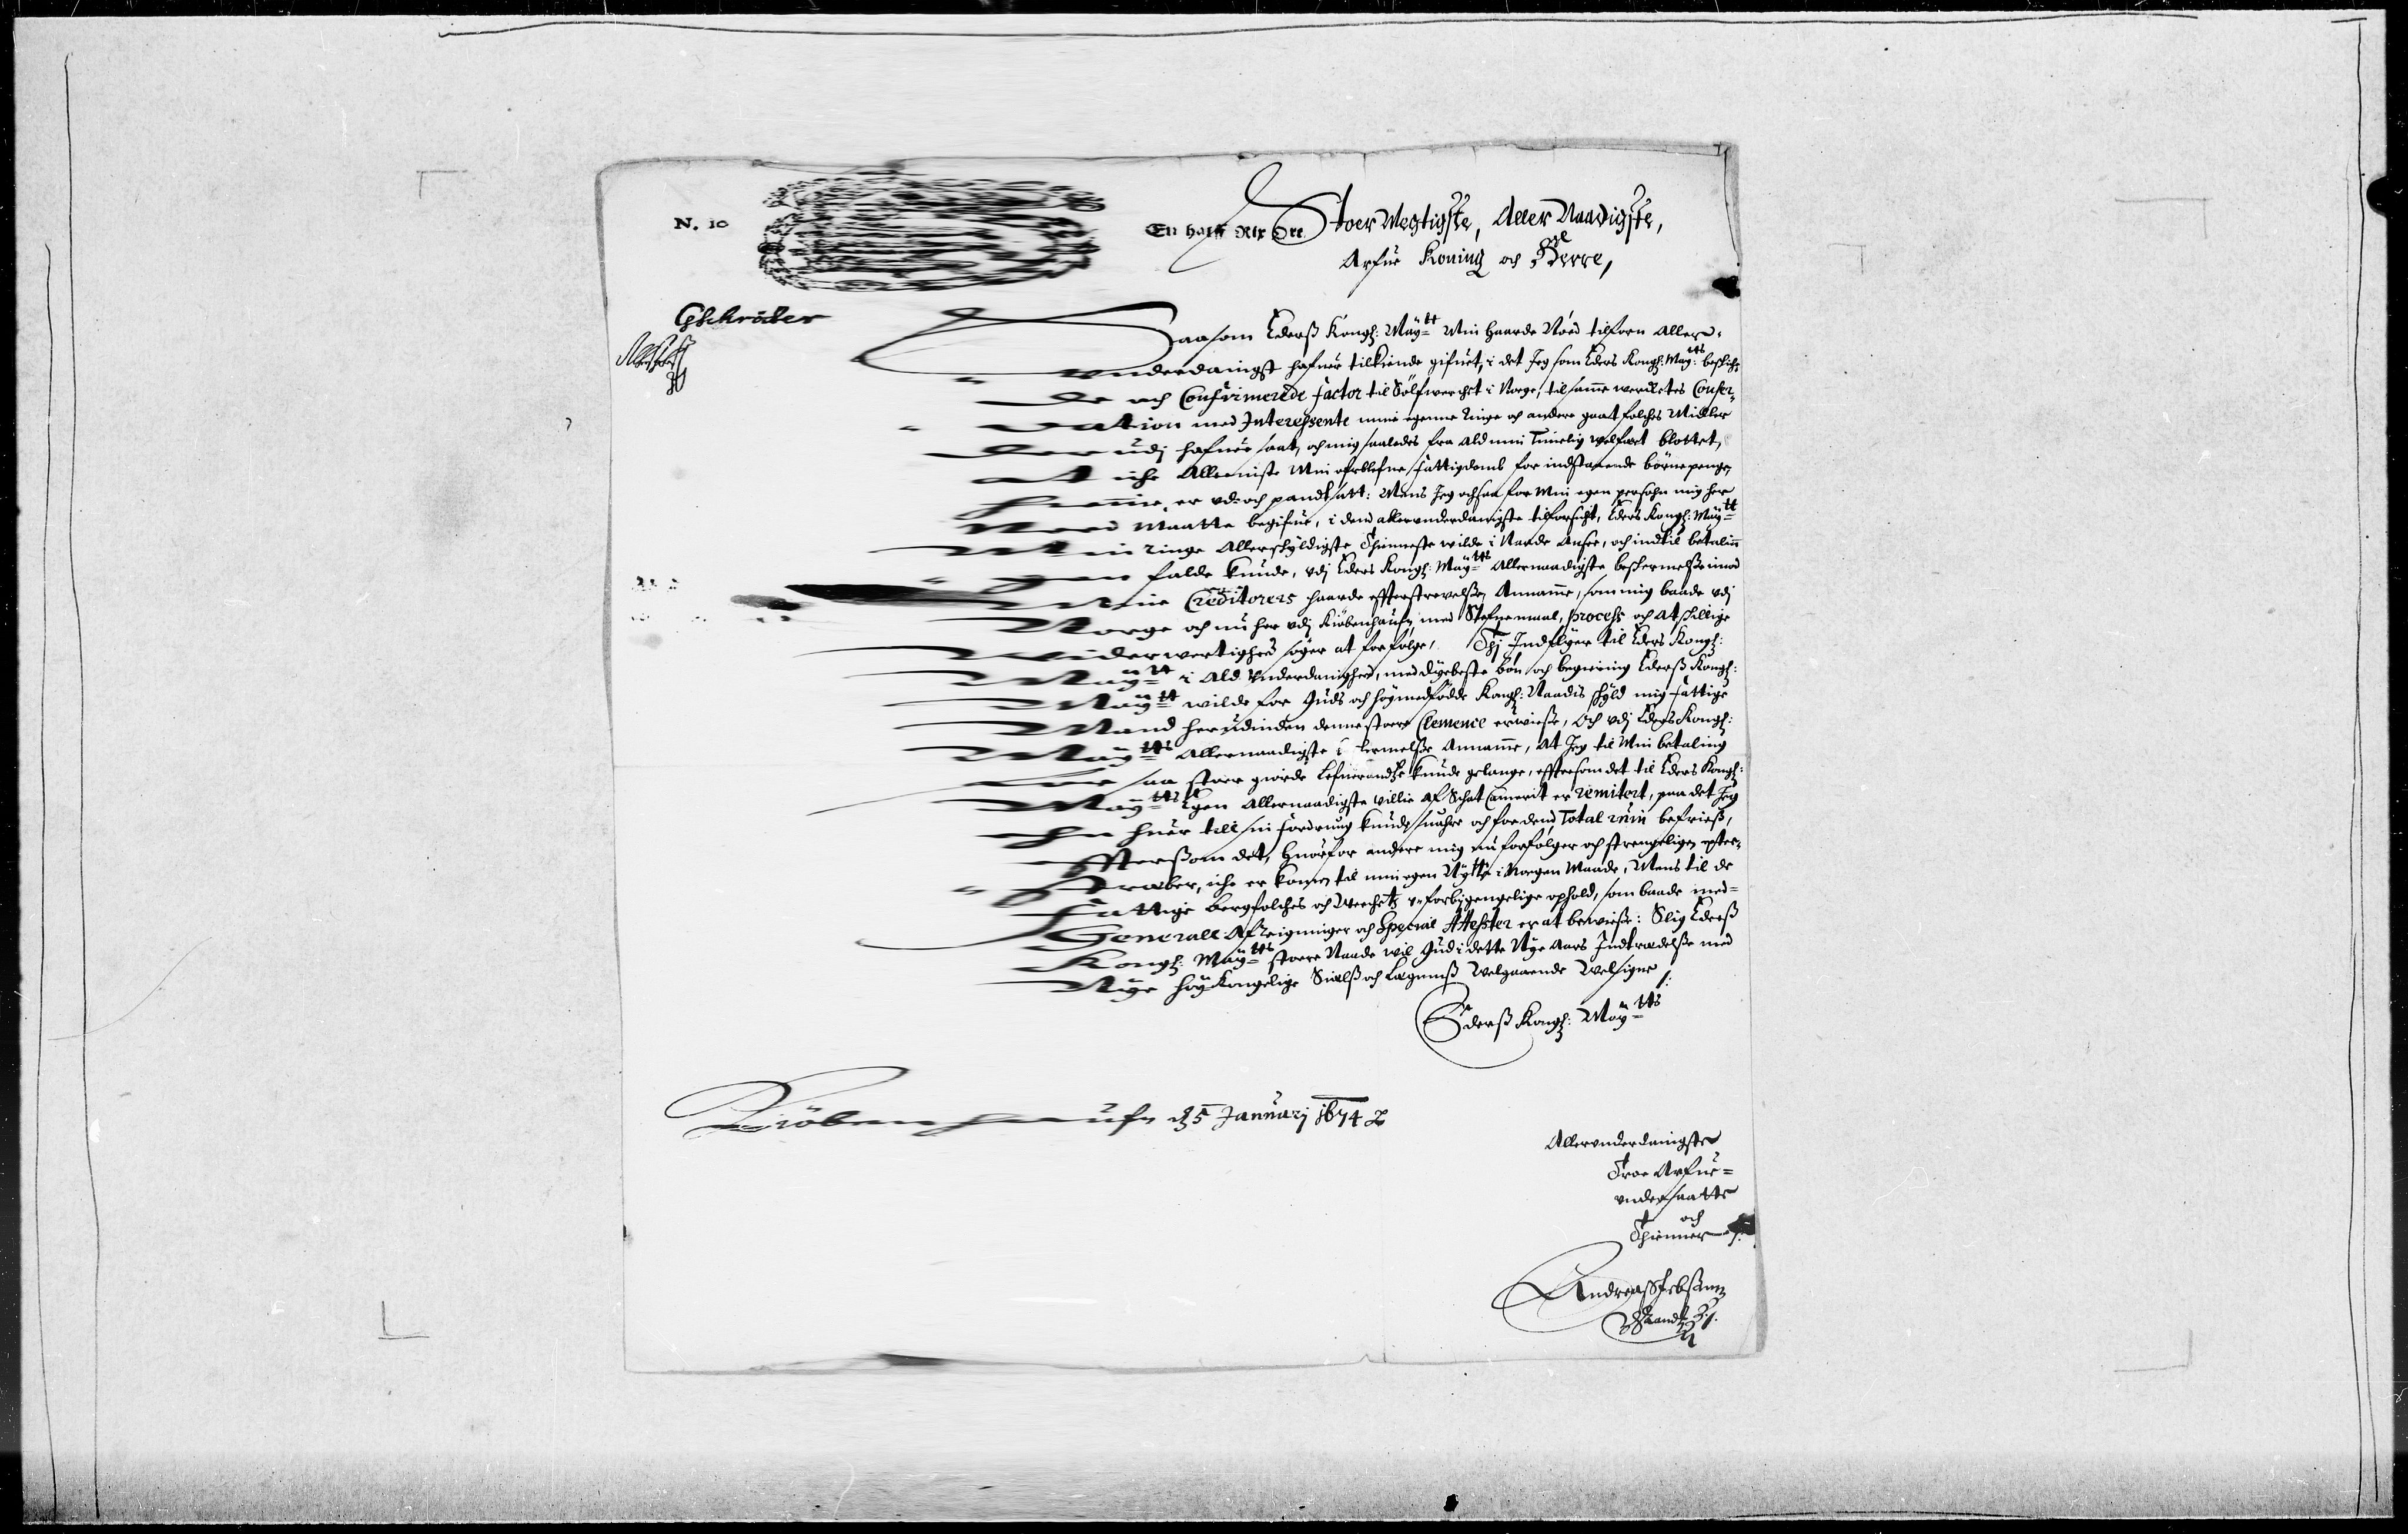 N. 10
En halff Rix Ort
Stoer Megtigste, Aller Naadigste,
Arfue Koning och Herre,
GSchröder
Saasom Ederß Kongl: Mayᵗᵗ Min haarde Nöed tilforn Aller-
vnderdanigst hafuer tilkiende gifuet, i det Jeg som Eders Kongl: Mayᵗᵗˢ beskiche
de och Confirmerede factor til Sölfwerchet i Norge, til samme werckets Conser-
vation med Interessente mine egenne ringe och andere gaat folches Midler
der udj hafuer saat, och mig saaledes fra ald min Timelig welfart blottet,
at iche Alleeniste Min ofrblefne fattigdomb for indstaaende börnepenge
er vd- och pandsatt: Mens Jeg ochsaa for Min egen persohn mig her
Need Maatte begifue, i dend allervnderdanigste tilforsicht, Eders Kongl: Mayᵗᵗ
Min ringe Allerskyldigste Thienneste wilde i Naade Ansee, och indtil betalin
gen falde kunde, vdj Eders Kongl: Mayᵗᵗˢ Allernaadigste beskermelße imod
Mine Creditorers haarde efterstrevelße Annamme, som mig baade vdj
Norge och nu her vdj Kiöbenhaufn med Stefnemaal, process och atskillige
widerwertighed söger at forfölge, Thj Indflyer til Eders Kongl:
Mayᵗᵗ i Ald Vnderdanighed, med dybeste bön och begiering Ederß Kongl:
Mayᵗᵗ wilde for Guds och höymedfödde Kongl: Naadis skyld mig fattige
Mand herudinden denne stoere Clemence erwieße, Och vdj Eders Kongl:
Mayᵗᵗˢ Allernaadigste Annamme, At Jeg til Min betaling
for saa stoer giorde Lefuerandtze kunde gelange, effttersom det til Eders Kongl:
Mayᵗᵗˢ Egen Allernaadigste Villie af Schat Camerit er remitert, paa det Jeg
En huer till sin fordrung kunde och for dend Total ruin befrieß,
Efftersom det, huorfor andere mig nu forfolger och strengeligen efter-
straber, iche er kommen til min egen Nytte i Nogen Maade, Mens til de
fattige bergfolches och Werchetz v-forbigengelige ophold, som baade med
Generale Afreigninger och Special Attester er at bewieße: Slig Ederß
Kongl: Mayᵗᵗˢ stoere Naade wil Gud i dette Nye Aars Indtrædelße med
Nye höy Kongelige Siælß och Legemß Velgaaende Velsigne /:
Ederß Kongl: Mayᵗᵗˢ
Kiöbenhaufn d 5 Januarj 1674
Allervnderdanigste
Troe Arfue-
vndersaatte
och
Thienner
Andreas